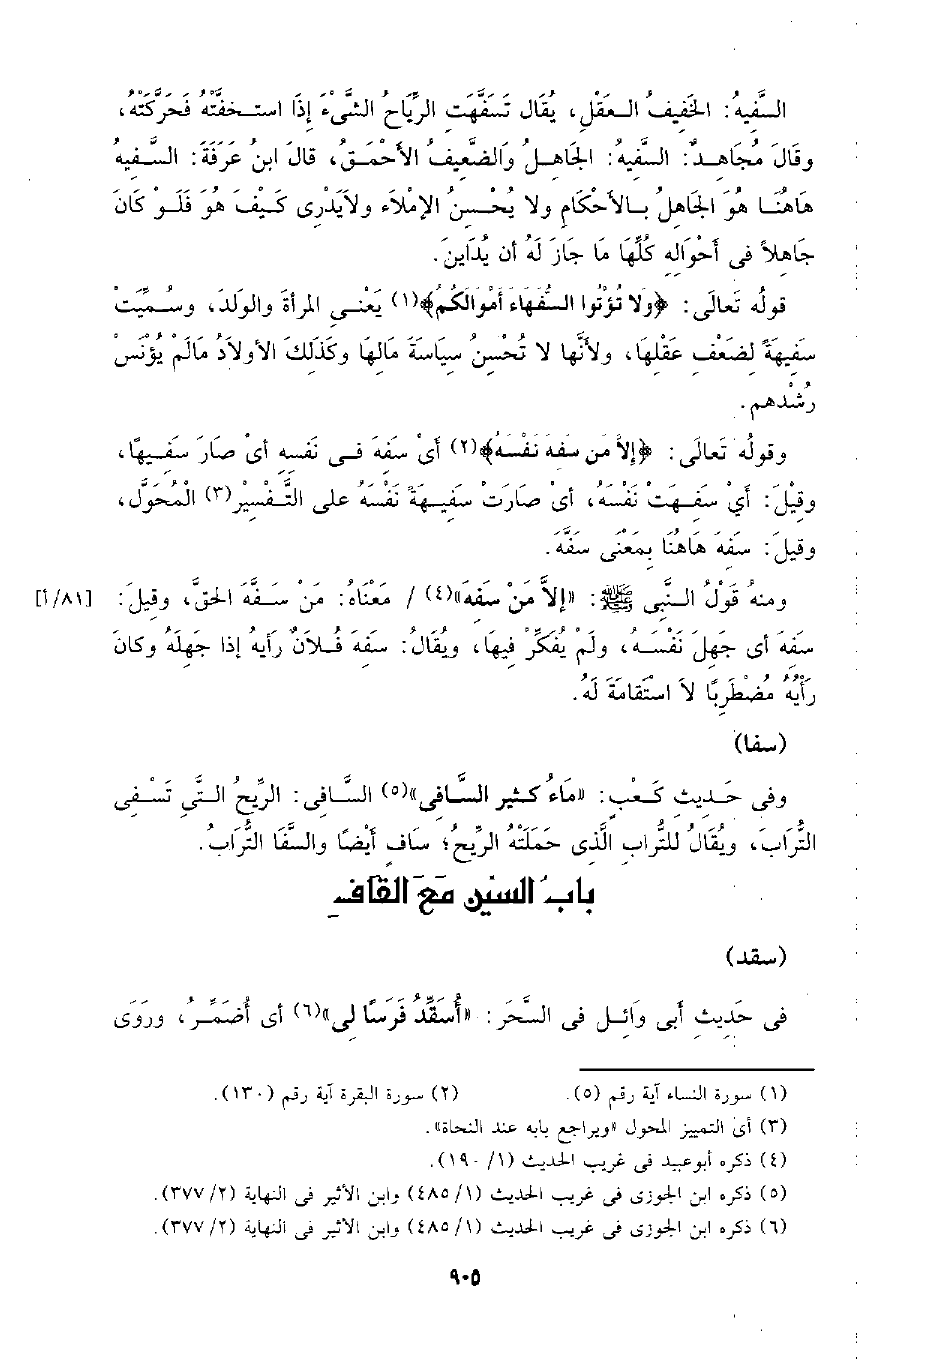 السَّفيهُ: الخَفيفُ العقْلِ، يُقَال تَسَفَّهَت الرِّيَاحُ الشَّىْءَ إذَا استخفَّتْهُ فَحَرَّكَتْهُ،
وقَالَ مُجَاهدٌ: السَّفيهُ: الجَاهلُ وَالضَّعِيفُ الأحْمَقُ، قالَ ابنُ عَرَفَةَ: السَّفيهُ
هَاهُنَا هوَ الجَاهلُ بالأحْكَامِ ولا يُحْسنُ الإمْلاَءَ ولاَيَدْرى كَيْفَ هوَ فَلَوْ كَانَ
جَاهلاً فى أحْوَاله كُلِّهَا مَا جَازَ لَهُ أن يُدَاينَ.
قولُه تَعالَى: ﴿ولا تُؤتُوا السُّفَهَاءَ أموَالَكُم﴾(١) يَعْنى المرأةَ والولَدَ، وسُمِّيَتْ
سَفِيهَةً لِضَعْفِ عَقْلِهَا، ولأنَّها لا تُحْسِنُ سيَاسَةَ مَالِهَا وكَذَلكَ الأولاَدُ مَالَمْ يُؤنَسْ
رُشْدهم.
وقولُه تَعالَى: ﴿إلاَّ من سَفهَ نَفْسَهُ﴾(٢) أىْ سَفهَ فى نَفْسِهِ أىْ صَارَ سَفيهًا،
وقِيْلَ: أَيْ سَفِهَتْ نَفْسُهُ، أىْ صَارَتْ سَفِيهَةً نَفْسُهُ على التَّفْسِيْرِ(٣) الْمُحَوَّلِ،
وقِيلَ: سَفِهَ هَاهُنَا بِمَعْنَى سَفَّهَ.
ومنهُ قَوْلُ النَّبى ﷺ: «إلاَّ مَنْ سَفِهَ»(٤) / مَعْنَاهُ: مَنْ سَفَّهَ الحَقَّ، وقِيلَ: [٨١/أ]
سَفِهَ أى جَهِلَ نَفْسَهُ، ولَمْ يُفَكِّرْ فِيهَا، ويُقَالُ: سَفِهَ فُلاَنٌ رَأيَهُ إذَا جَهِلَهُ وكَانَ
رَأْيُهُ مُضْطَرِبًا لاَ اسْتِقَامَةَ لَهُ.
(سفا)
وفى حَديث كَعْبٍ: «مَاءُ كَثيرِ السَّافى»(٥) السَّافِى: الرِّيحُ الَّتِى تَسْفِى
التُّرَابَ، ويُقَالُ للتُّرابِ الَّذى حَمَلَتْهُ الرِّيحُ؛ سَافٍ أيْضًا والسَّفَا التُّرَابُ.
بابُ السين مَعَ القَاف
(سقد)
فى حَديثِ أبى وَائلٍ فى السَّحَرِ: «أُسَقِّدُ فَرَسًا لِى»(٦) أى أُضَمِّرُ، ورَوَى
(١) سورة النساء آية رقم (٥). (٢) سورة البقرة آية رقم (١٣٠).
(٣) أى التمييز المحول «ويراجع بابه عند النحاة».
(٤) ذكره أبوعبيد فى غريب الحديث (١/ ١٩٠).
(٥) ذكره ابن الجوزى فى غريب الحديث (١/ ٤٨٥) وابن الأثير فى النهاية (٢/ ٣٧٧).
(٦) ذكره ابن الجوزى فى غريب الحديث (١/ ٤٨٥) وابن الأثير فى النهاية (٢/ ٣٧٧).
٩٠٥